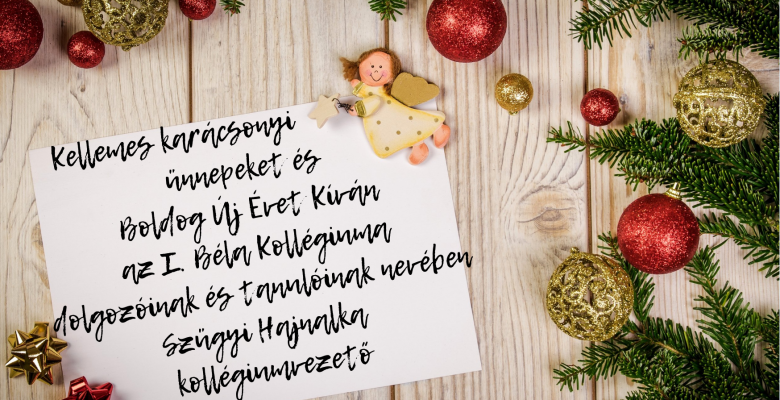 Kellemes karácsonyi
ünnepeket és
Boldog Új Évet Kíván
az I. Béla Kollégiuma
dolgozóinak és tanulóinak nevében
Szűgyi Hajnalka
kollégiumvezető